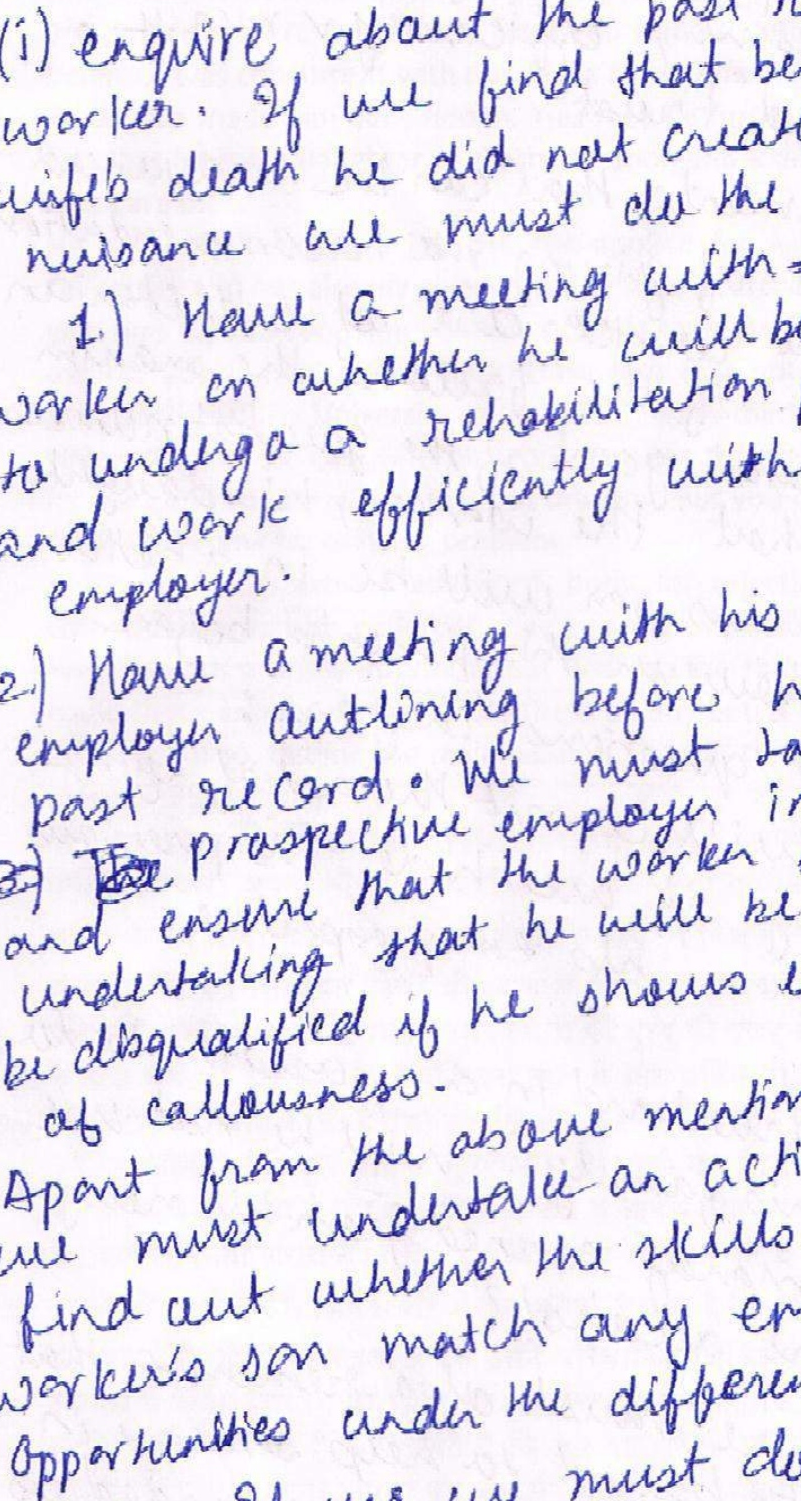 (i) enquire about the past
worker. If we find that be
wife's death he did not creat
nuisance we must do the
1.) Have a meeting with
worker on whether he will be
to undergo a rehabilitation
and work efficiently with
employer.
2.) Have a meeting with his
employer outlining before h
past record. We must ta
3) The prospective employer in
and ensure that the worker
undertaking that he will be
be disqualified if he shows e
of callousness.
Apart from the above mention
we must undertake an acti
find out whether the skills
worker's son match any em
opportunities under the differen
If yes we must do